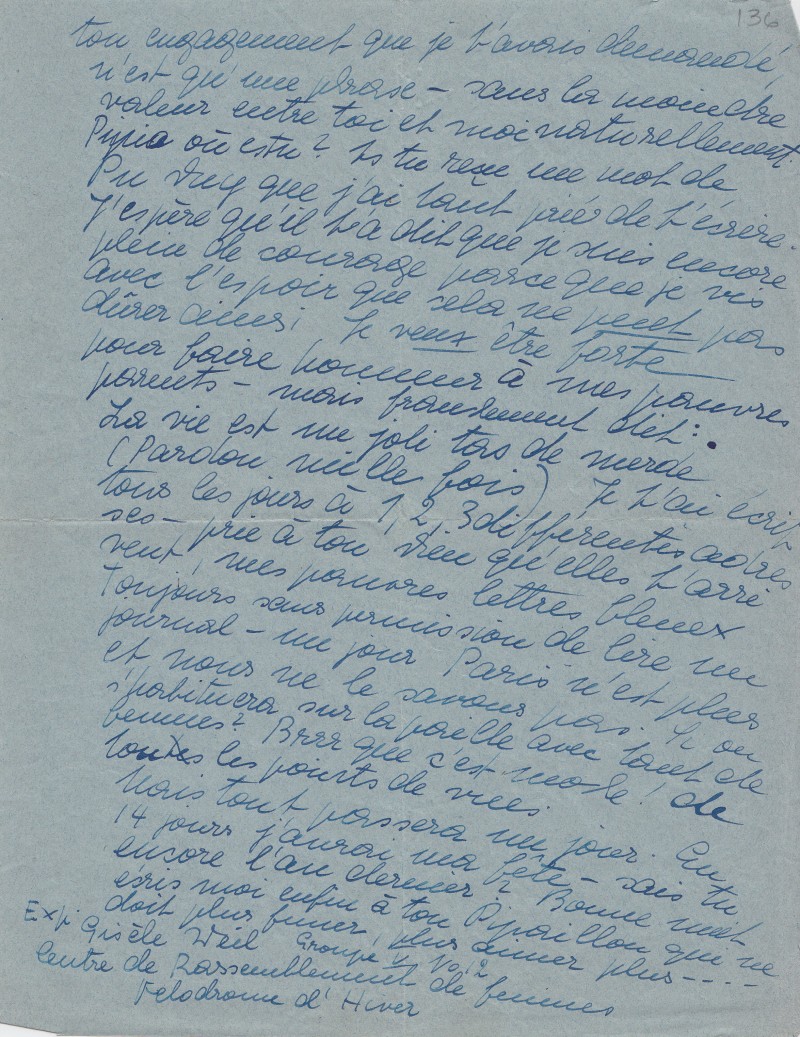 136
ton engagement que je t'avais demandé,
n'est qu'une phrase – sans la moindre
valeur entre toi et moi naturellement.
Pipa où es tu? As tu reçu un mot de
que j'ai tant prié de t'écrire
J'espère qu'il t'a dit que je suis encore
plein de courage parce que je vis
avec l'espoir que cela ne peut pas
dûrer ainsi. Je veux être forte
pour faire honneur à mes pauvres
parents – mais franchement dit:
La vie est un joli tas de merde
(Pardon mille fois) Je t'ai écrit
tous les jours à 1, 2, 3 différentes adres
ses – prie à ton Dieu qu'elles t'arri
vent, mes pauvres lettres bleues
Toujours sans permission de lire un
journal – un jour Paris n'est plus
et nous ne le savons pas. Si on
s'habituera sur la paille avec tant de
femmes? Brrr que c'est moche! de
toutes les points de vues
Mais tout passera un jour. En
14 jours j'aurai ma fête – sais tu
encore l'an dernier? Bonne nuit
ecris moi enfin à ton Pipaillon qui ne
doit plus fumer, plus aimer plus ----
Exp. Gisèle Weil Groupe V No 12
Centre de Rassemblement de femmes
Velodrome d'Hiver